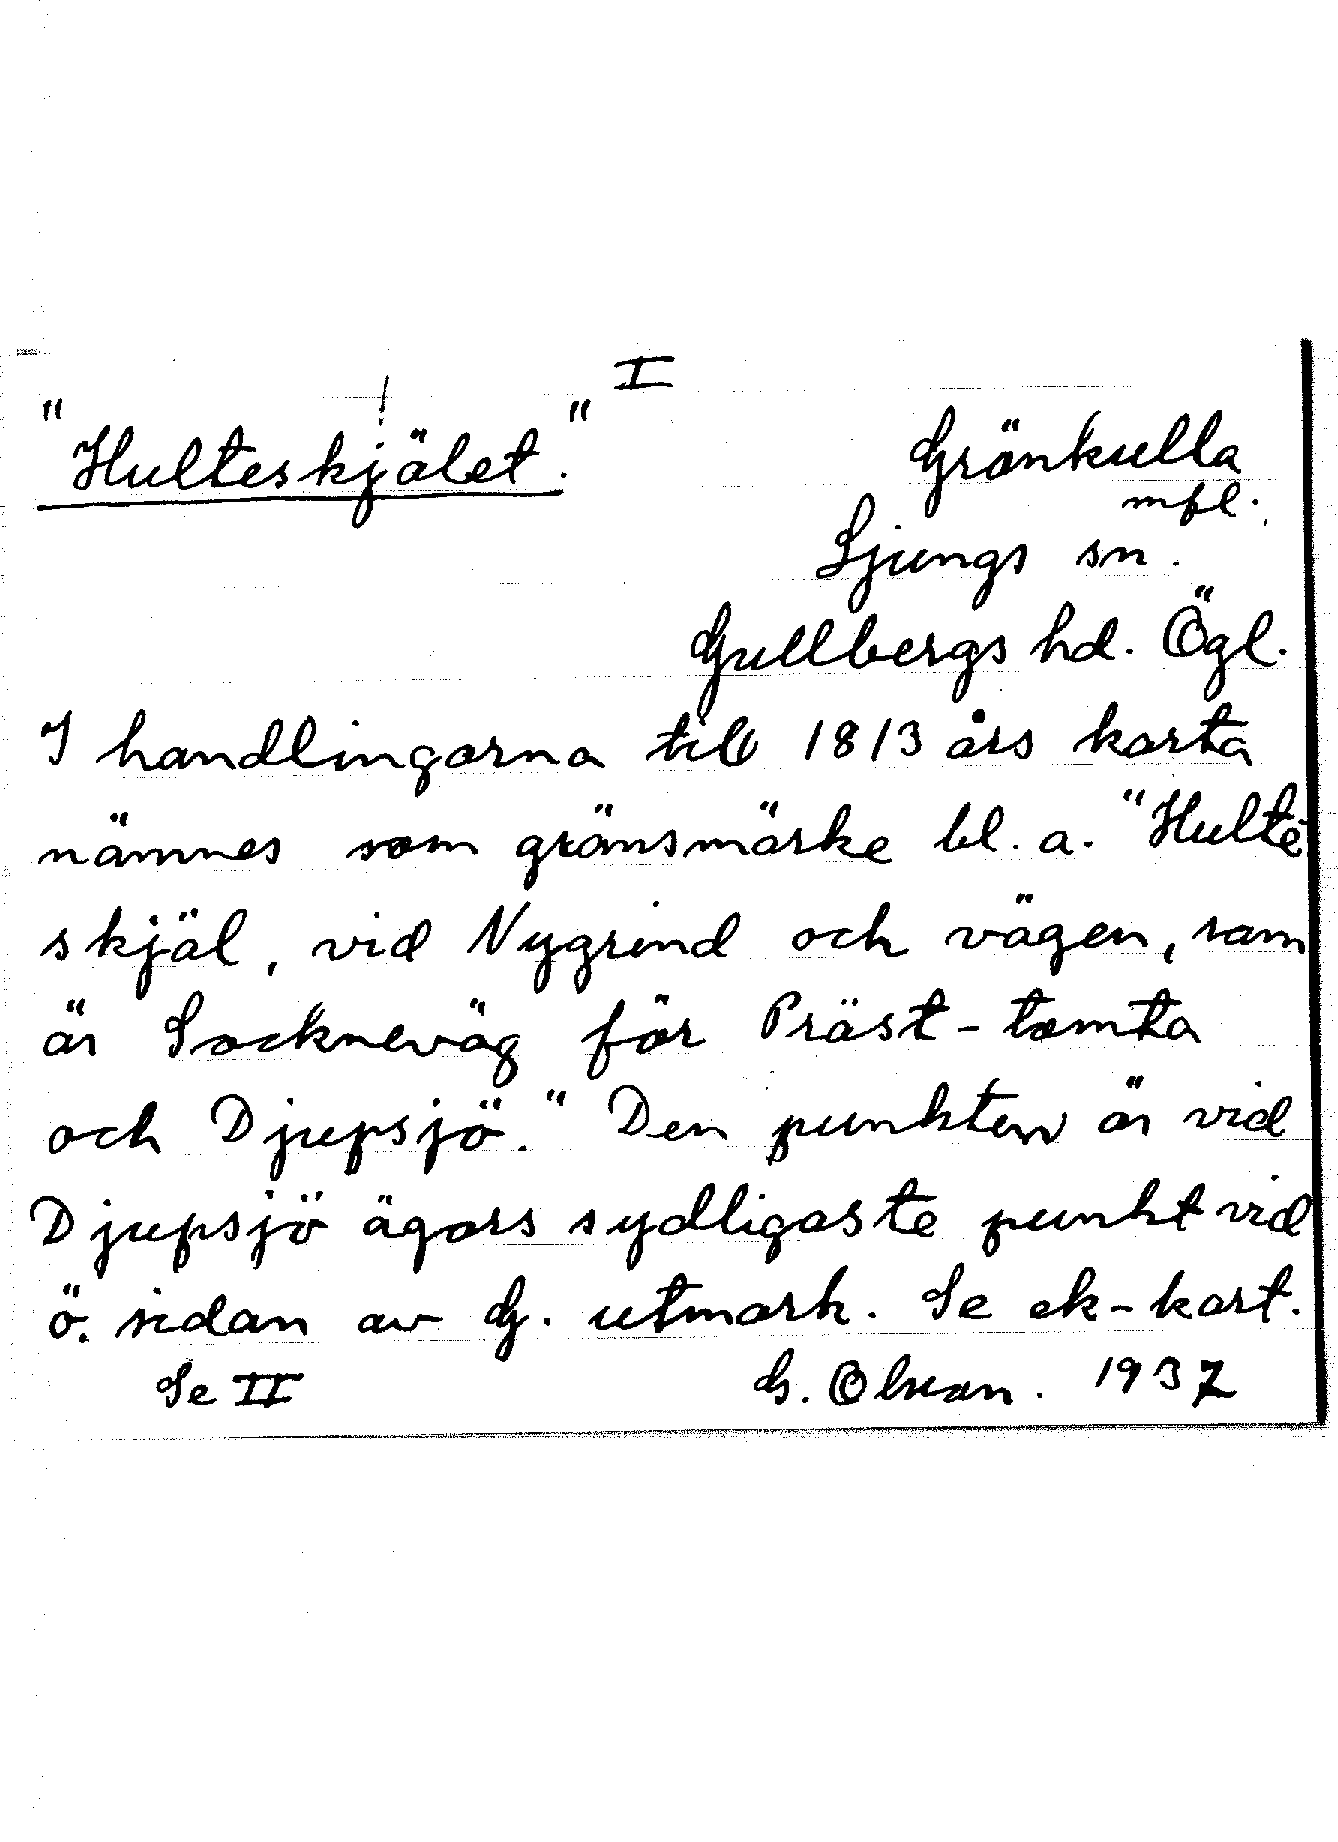 I
"Hulteskjälet."
Grönkulla
mfl.
Ljungs sn.
Gullbergs hd. Ögl.
I handlingarna till 1813 års karta
nämnes som gränsmärke bl. a. "Hulte-
skjäl, vid Nygrind och vägen, som
är Sockneväg för Präst-tomta
och Djupsjö." Den punkten är vid
Djupsjö ägors sydligaste punkt vid
ö. sidan av G. utmark. Se ek-kart.
Se II
G. Olsson. 1937